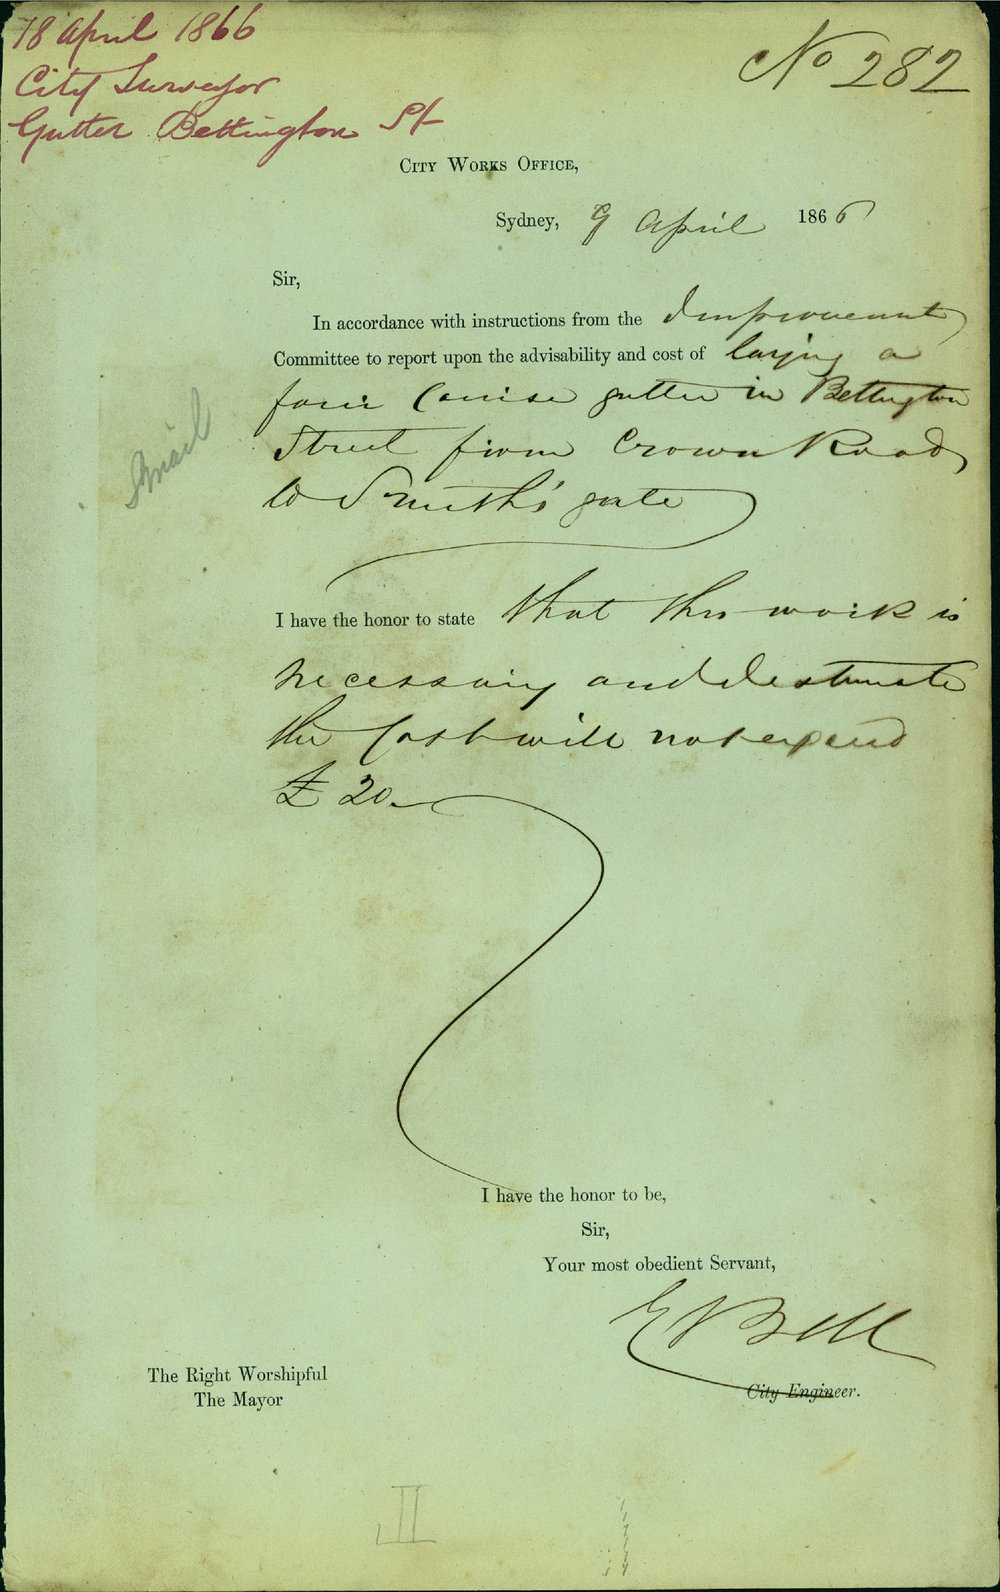 18 April 1866
City Surveyor
Gutter Bettington St
No 282
City Works Office,
Sydney, 9 April 1866
Sir,
In accordance with instructions from the Improvement
Committee to report upon the advisability and cost of laying a
four Course gutter in Bettington
Street from Crown Road
to Smith's gate
I have the honor to state that this work is
necessary and I estimate
the Cost will not exceed
£ 20
I have the honor to be,
Sir,
Your most obedient Servant,
E Bell
City Engineer.
The Right Worshipful
The Mayor